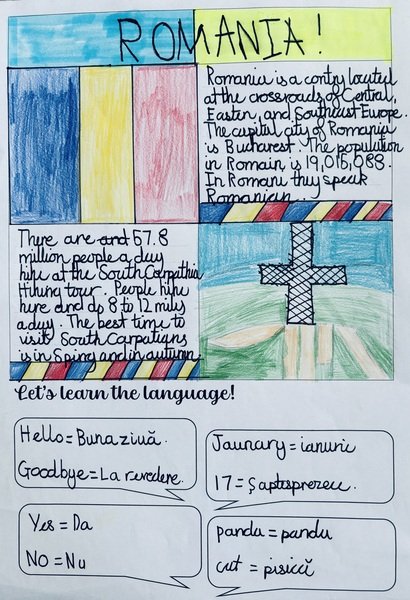 ROMANIA!
Romania is a contry located
at the crossroads of Central,
Eastern, and Southeast Europe.
The capital city of Romania
is Bucharest. The population
in Romain is 19,015,088.
In Romani they speak
Romanian.
There are and 57.8
million people a day
hike at the South Carpathia
Hiking tour. People hike
here and do 8 to 12 miles
a day. The best time to
visit South Carpatians
is in Spring and in autumn.
Let's learn the language!
Hello = Buna ziuă.
Goodbye = La revedere.
Jaunary = ianurie
17 = Șaptesprezece.
Yes = Da
NO = Nu
panda = panda
cat = pisică